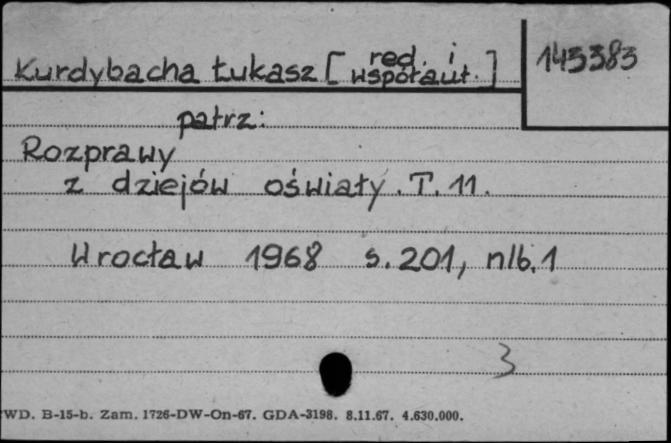 Kurdybacha Łukasz [red. i współaut.]
143383
patrz:
Rozprawy
z dziejów oświaty. T. 11.
Wrocław 1968 s. 201, nlb. 1
3
WD. B-15-b. Zam. 1726-DW-On-67. GDA-3198. 8.11.67. 4.630.000.